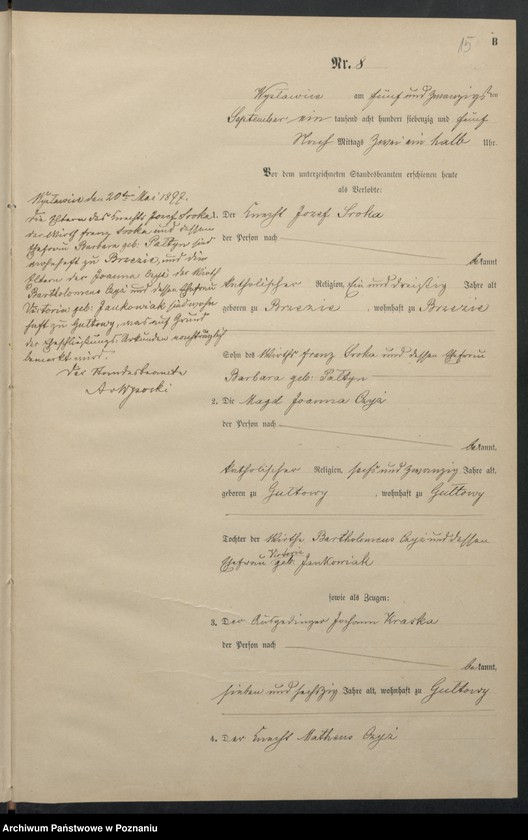 15
B
Nr. 8
Wyslawice am fünf und zwanzigsten
September ein tausend acht hundert siebenzig und fünf
Nach Mittags zwei ein halb Uhr.
Vor dem unterzeichneten Standesbeamten erschienen heute
als Verlobte:
1. Der Knecht Josef Sroka
der Person nach
bekannt
katholischer Religion, Ein und dreißig Jahre alt
geboren zu Brzezie, wohnhaft zu Brzezie
Sohn des Wirths Franz Sroka und dessen Ehefrau
Barbara geb: Paltyn
2. Die Magd Joanna Czyż
der Person nach
bekannt,
katholischer Religion, sechs und zwanzig Jahre alt,
geboren zu Gultowy, wohnhaft zu Gultowy
Tochter der Wirths Bartholomeus Czyż und dessen
Ehefrau Victoria geb: Jankowiak
sowie als Zeugen:
3. Der Ausgedinger Johann Kraska
der Person nach
bekannt,
sieben und sechszig Jahre alt, wohnhaft zu Gultowy
4. Der Knecht Matheus Czyż
Wyslawice den 20ten Mai 1877.
Die Eltern des Knechts Josef Sroka
der Wirth Franz Sroka und dessen
Ehefrau Barbara geb: Paltyn sind
wohnhaft zu Brzezie, und die
Eltern der Joanna Czyż der Wirth
Bartholomeus Czyż und dessen Ehefrau
Victoria geb: Jankowiak sind wohn
haft zu Gultowy, was auf Grund
der Eheschließungs Urkunden nachträglich
bemerkt wird.
Der Standesbeamte
Archiwum Państwowe w Poznaniu